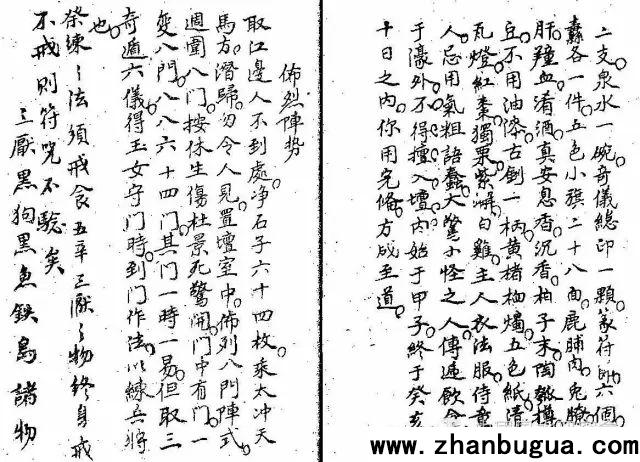 二支泉水一碗奇儀總印一顆篆符印六個
纛各一件五色小旗二十八面鹿脯肉兔膽
肝羶血肴酒真安息香沉香柏子末陶數樽
豆不用油漆古劍一柄黃楮柏燭五色紙清
瓦燈紅棗獨栗紫白雞主人衣法服侍童
人忌用氣粗語蠢大驚小怪之人傳遞飲食
于濠外不得擅入壇內始于甲子終于癸亥
十日之內你用完備方成至道
佈烈陣勢
取江邊人不到處净石子六十四枚乘太冲天
馬方潛歸勿令人見置壇室中佈列八門陣式
週圍八門按休生傷杜景死驚開門中有門一
變八門八八六十四門其門一時一易但取三
奇遁六儀得玉女守門時到門作法以練兵將
也
祭練之法須戒食五辛三厭之物終身戒
不戒則符咒不驗矣
三厭黑狗黑魚鉄鳥諸物
www.zhanbugua.com